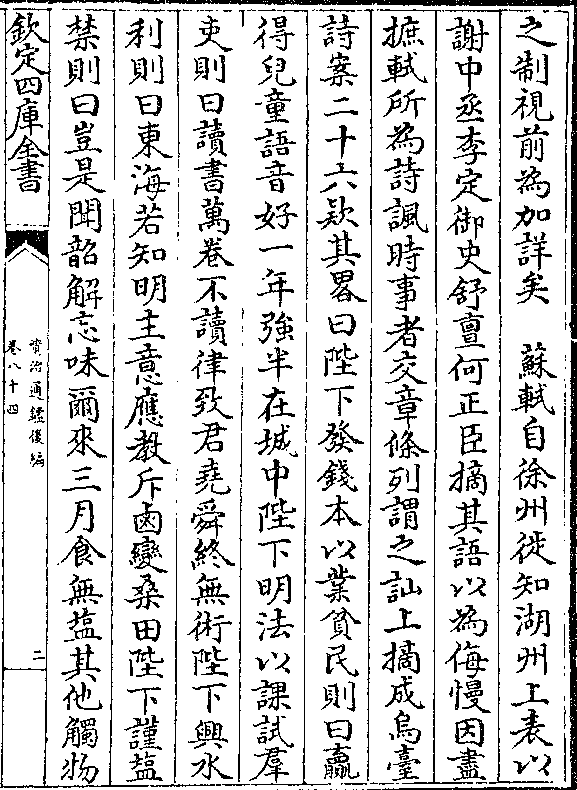 之制視前為加詳矣　蘇軾自徐州徙知湖州上表以
謝中丞李定御史舒亶何正臣摘其語以為侮慢因盡
摭軾所為詩諷時事者交章條列謂之訕上摘成烏臺
詩案二十六欵其畧曰陛下發錢本以業貧民則曰贏
得兒童語音好一年強半在城中陛下明法以課試羣
吏則曰讀書萬卷不讀律致君堯舜終無術陛下興水
利則曰東海若知明主意應教斥鹵變桑田陛下謹塩
禁則曰豈是聞韶解忘味爾來三月食無塩其他觸物
欽定四庫全書
資治通鑑後編
卷八十四
二